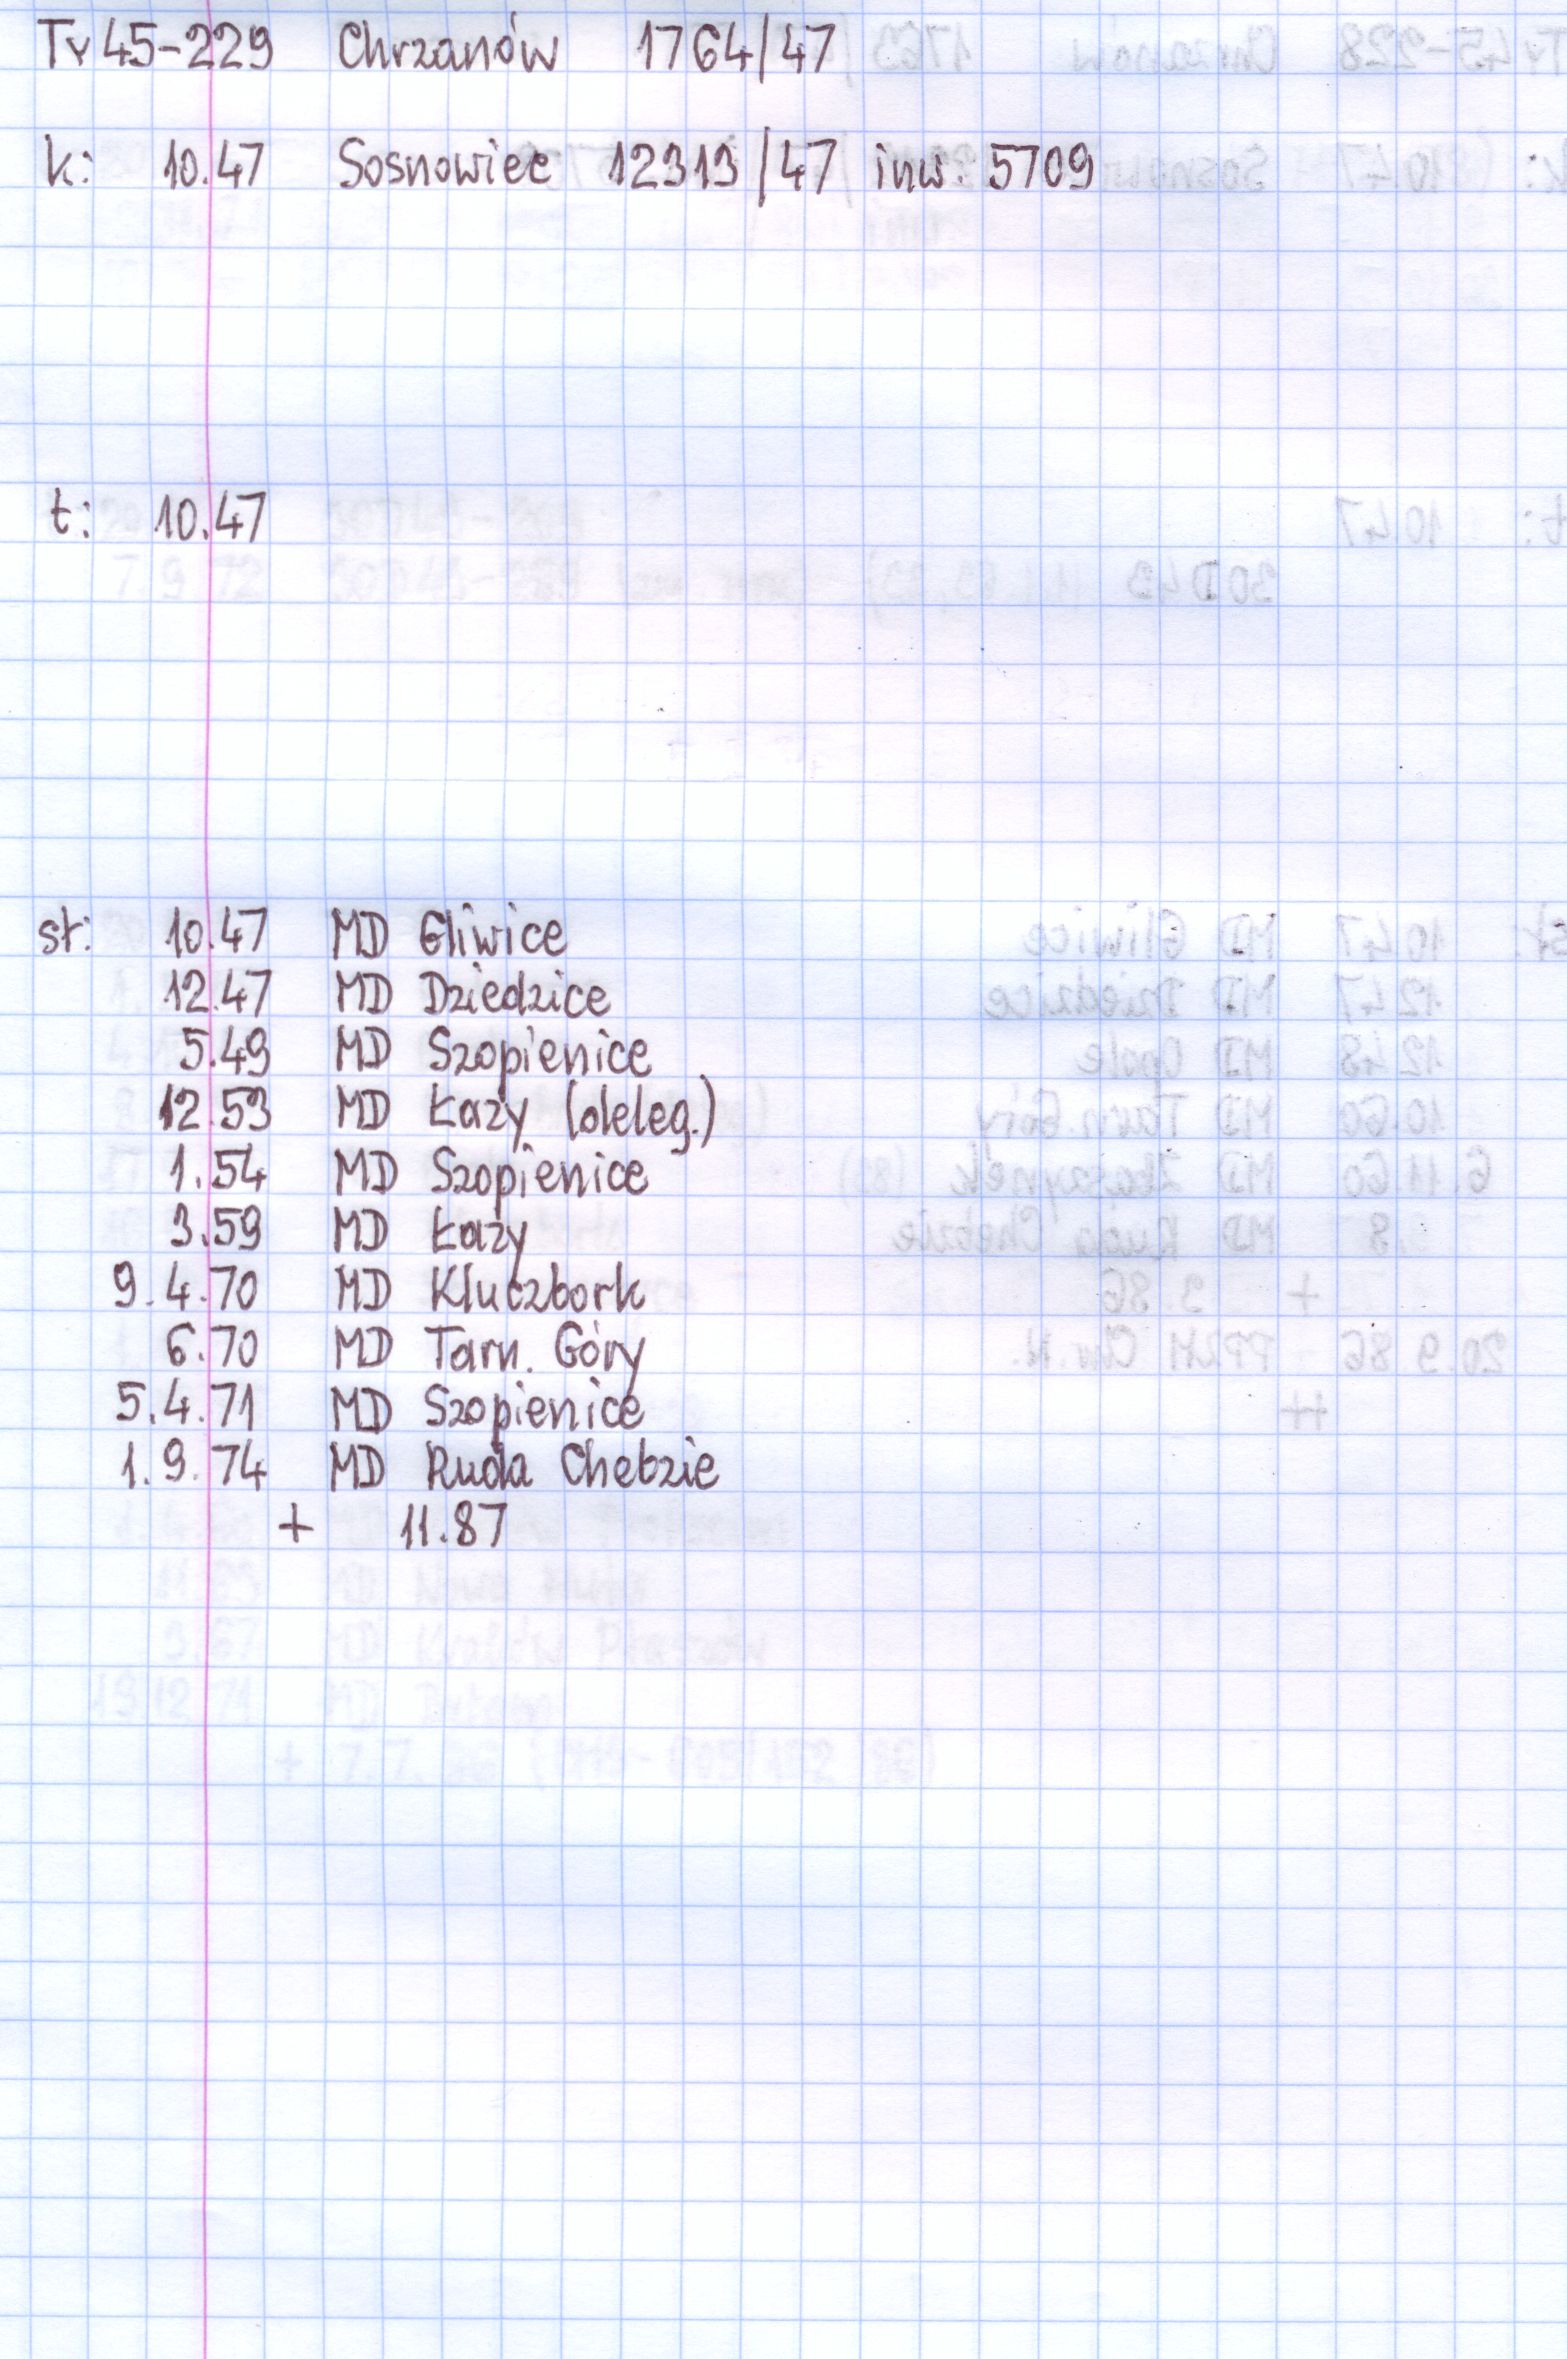 Ty45-229 Chrzanów 1764/47
k: 10.47 Sosnowiec 12313/47 inw. 5709
t: 10.47
st: 10.47 MD Gliwice
12.47 MD Dziedzice
5.49 MD Szopienice
12.53 MD Łazy (deleg.)
1.54 MD Szopienice
3.59 MD Łazy
9.4.70 MD Kluczbork
6.70 MD Tarn. Góry
5.4.71 MD Szopienice
1.9.74 MD Ruda Chebzie
+ 11.87